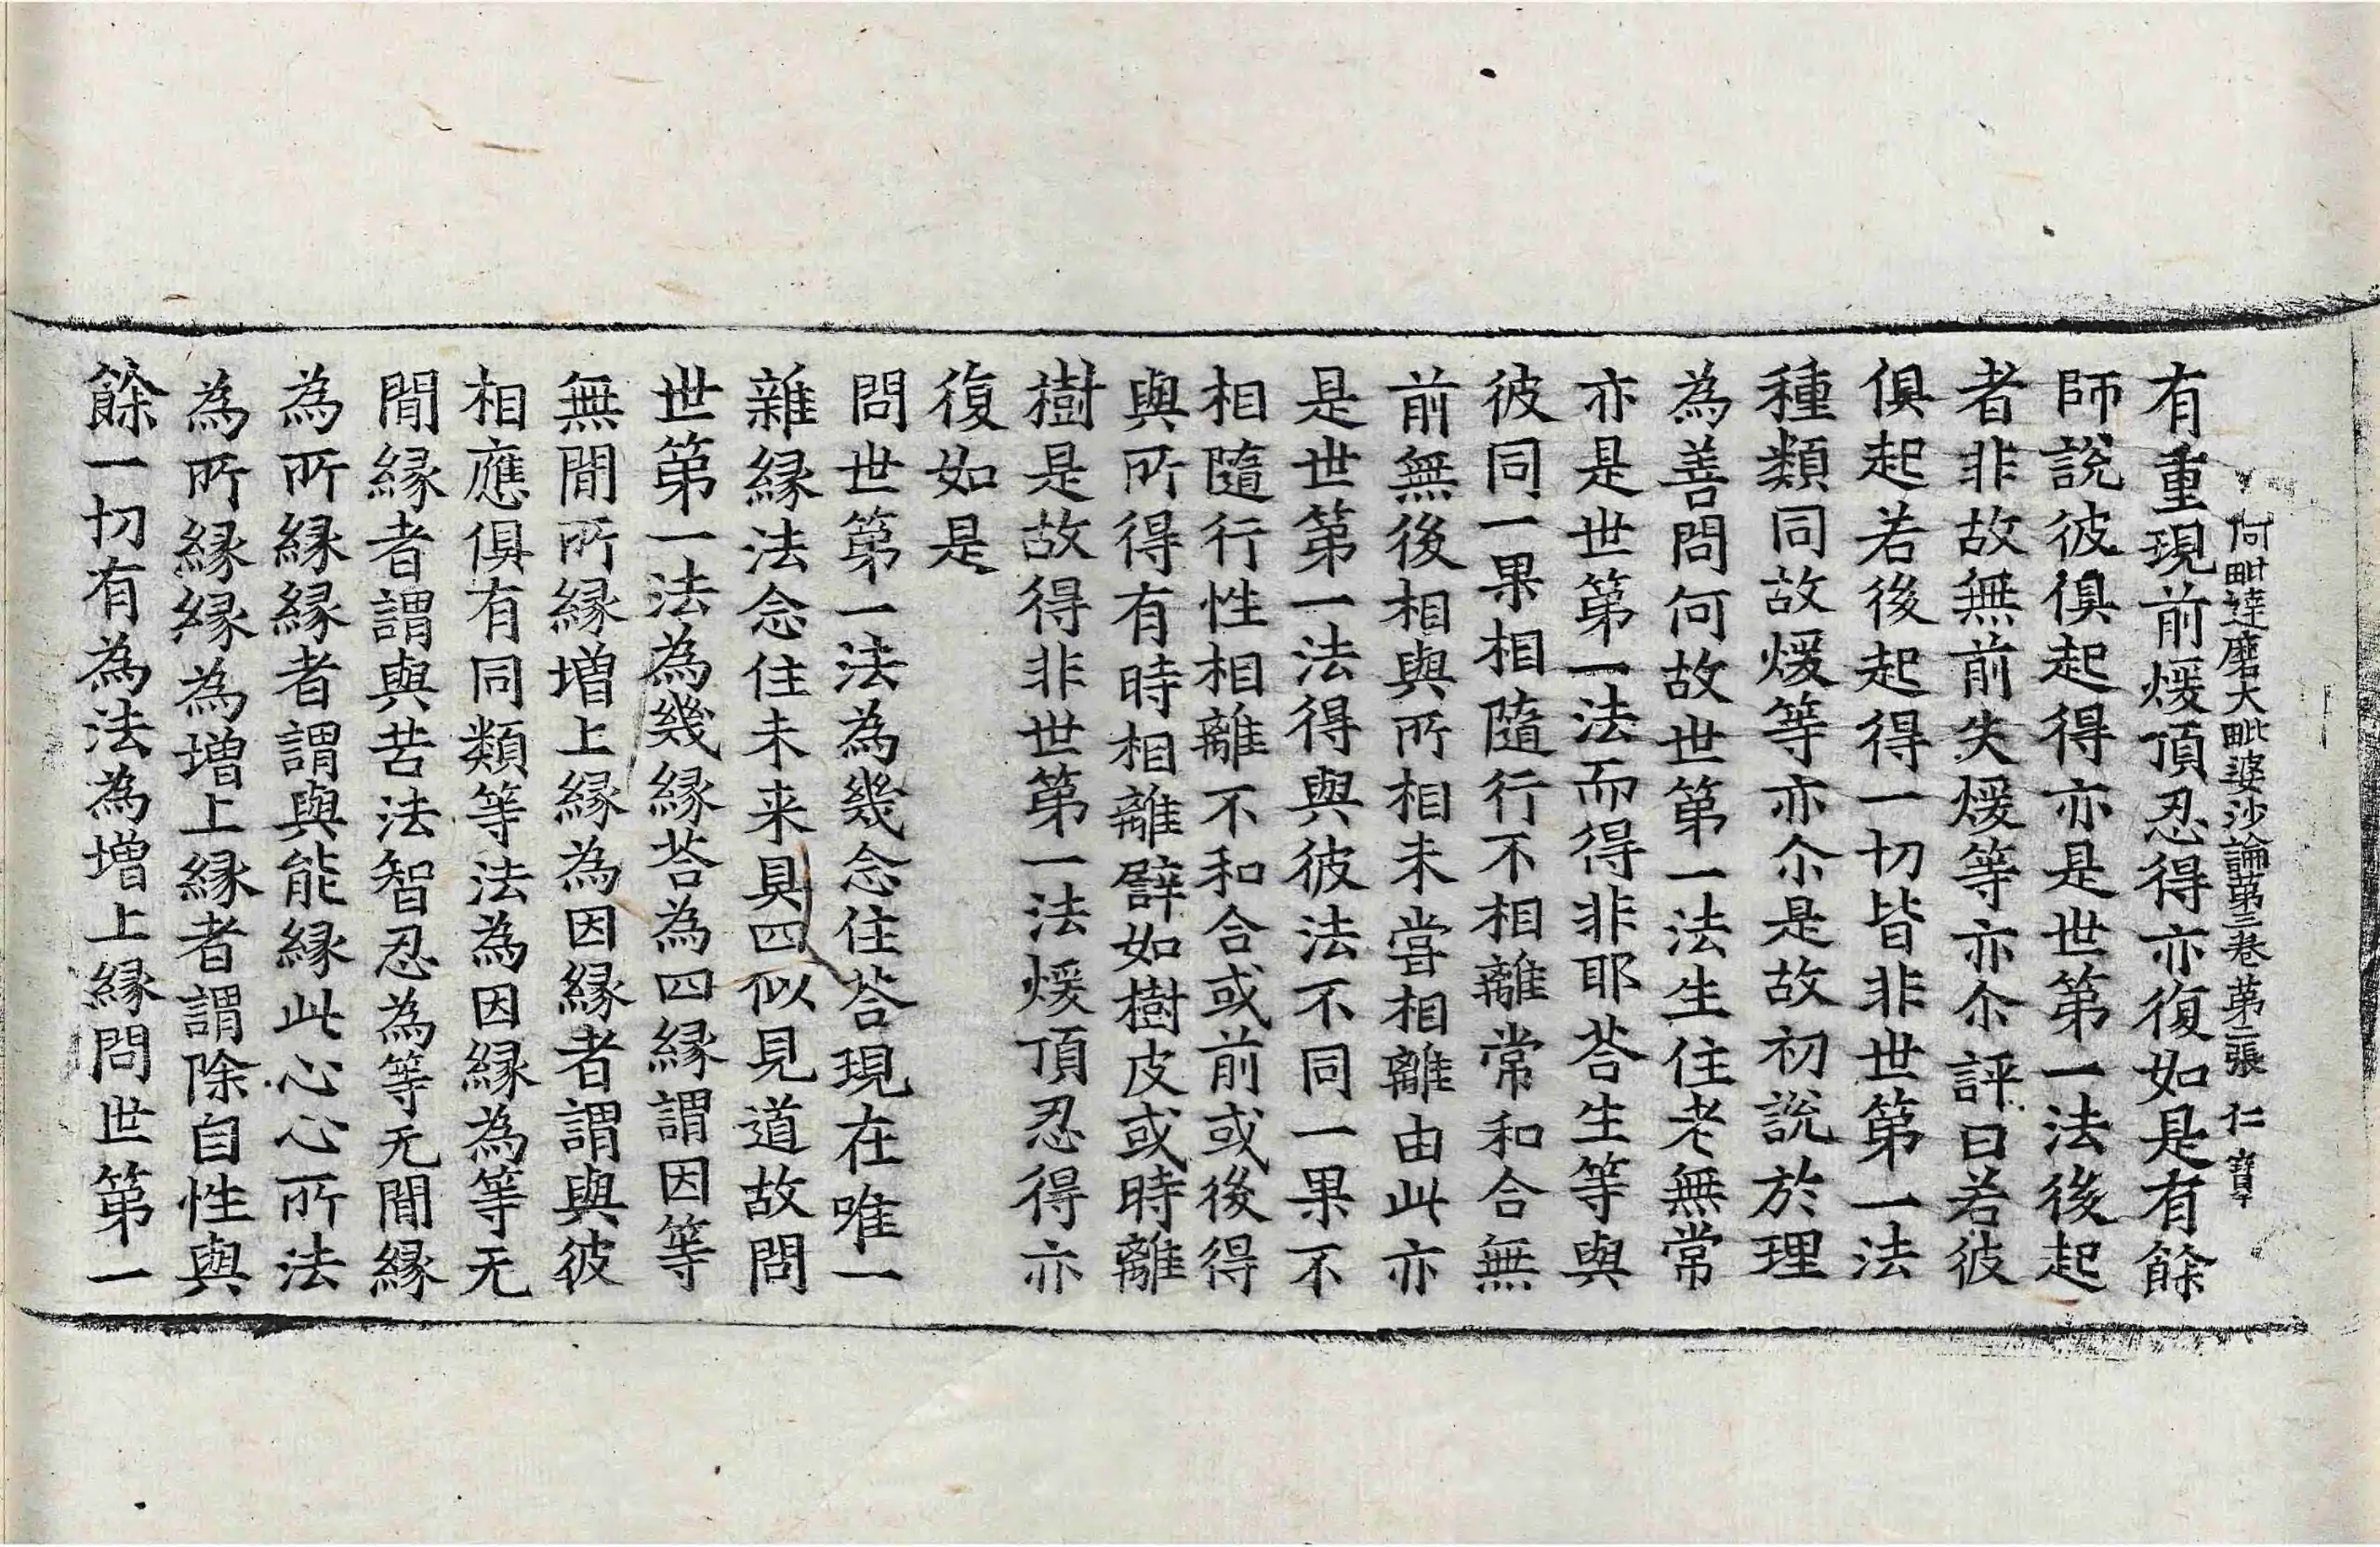 阿毗達磨大毗婆沙論第三卷 第二張 仁
有重現前煖頂忍得亦復如是有餘
師說彼俱起得亦是世第一法後起
者非故無前失煖等亦尒評曰若彼
俱起若後起得一切皆非世第一法
種類同故煖等亦尒是故初說於理
為善問何故世第一法生住老無常
亦是世第一法而得非耶荅生等與
彼同一果相隨行不相離常和合無
前無後相與所相未甞相離由此亦
是世第一法得與彼法不同一果不
相隨行性相離不和合或前或後得
與所得有時相離譬如樹皮或時離
樹是故得非世第一法煖頂忍得亦
復如是
問世第一法為幾念住荅現在唯一
雜緣法念住未来具四似見道故問
世第一法為幾緣荅為四緣謂因等
無間所緣增上緣為因緣者謂與彼
相應俱有同類等法為因緣為等无
間緣者謂與苦法智忍為等无間緣
為所緣緣者謂與能緣此心心所法
為所緣緣為增上緣者謂除自性與
餘一切有為法為增上緣問世第一